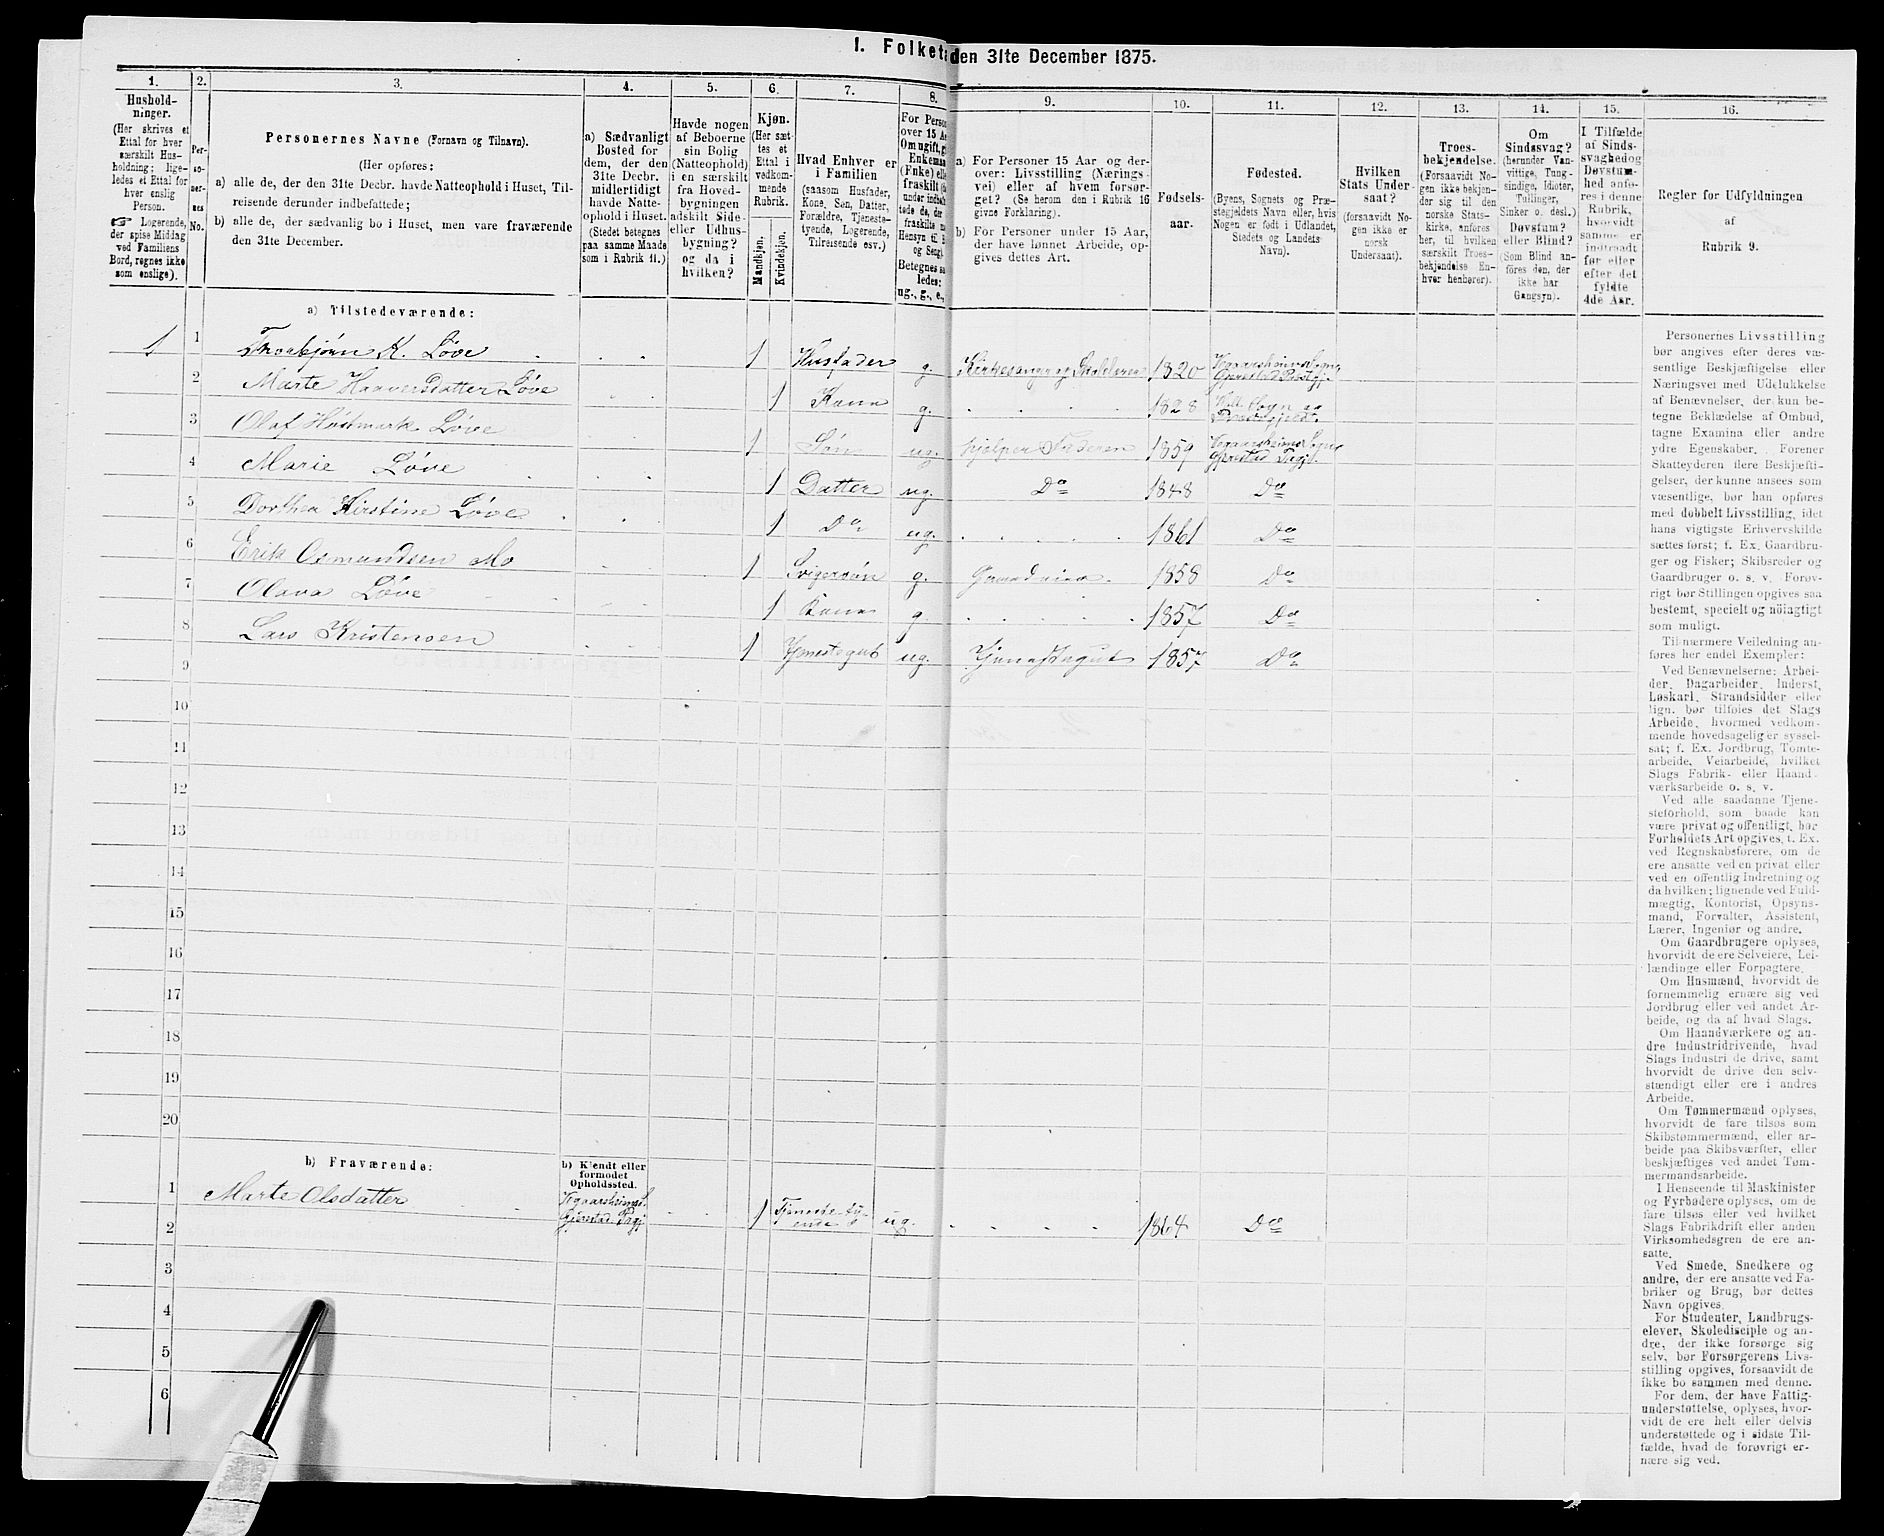 1. Folket
den 31te December 1875.
1.
Hushold-
ninger.
(Her skrives et
Ettal for hver
særskilt Hus-
holdning; lige-
ledes et Ettal for
hver enslig
Person.
☞ Logerende,
der spise Middag
ved Familiens
Bord, regnes ikke
som enslige).
2.
Per-
so-
ner-
nes
No.
3.
Personernes Navne (Fornavn og Tilnavn).
(Her opføres:
a) alle de, der den 31te Decbr. havde Natteophold i Huset, Til-
reisende derunder indbefattede;
b) alle de, der sædvanlig bo i Huset, men vare fraværende
den 31te December.
4.
a) Sædvanligt
Bosted for
dem, der den
31te Decbr.
midlertidigt
havde Natte-
ophold i Huset.
(Stedet betegnes
paa samme Maade
som i Rubrik 11.)
5.
Havde nogen
af Beboerne
sin Bolig
(Natteophold)
i en særskilt
fra Hoved-
bygningen
adskilt Side-
eller Udhus-
bygning?
og da i
hvilken?
6.
Kjøn.
(Her sæt-
tes et
Ettal i
vedkom-
mende
Rubrik.
Mandkjøn.
Kvindekjøn.
7.
Hvad Enhver er
i Familien
(saasom Husfader,
Kone, Søn, Datter,
Forældre, Tjeneste-
tyende, Logerende,
Tilreisende osv.)
8.
For Perso
over 15 Aa
Om ugift, g
Enkema
(Enke) elle
fraskilt (h
under indbefa
tede de, der
fraskilte m
Hensyn til B
og Seng).
Betegnes saa
ledes:
ug., g., e.,
9.
a) For Personer 15 Aar og der-
over: Livsstilling (Nærings-
vei) eller af hvem forsør-
get? (Se herom den i Rubrik 16
givne Forklaring).
b) For Personer under 15 Aar,
der have lønnet Arbeide, op-
gives dettes Art.
10.
Fødsels-
aar.
11.
Fødested.
(Byens, Sognets og Præ-
stegjeldets Navn eller, hvis
Nogen er født i Udlandet,
Stedets og Landets
Navn).
12.
Hvilken
Stats Under-
saat?
(forsaavidt No-
gen ikke er
norsk
Undersaat).
13.
Troes-
bekjendelse.
(Forsaavidt No-
gen ikke bekjen-
der sig til den
norske Stats-
kirke, anføres
her, til hvilken
særskilt Troes-
bekjendelse En-
hver henhører).
14.
Om
Sindssvag?
(herunder Van-
vittige, Tung-
sindige, Idioter,
Tullinger,
Sinker o. desl.)
Døvstum?
eller Blind?
(Som Blind an-
føres den, der
ikke har
Gangsyn).
15.
I Tilfælde
af Sinds-
svaghed og
Døvstum-
hed anfø-
res i denne
Rubrik,
hvorvidt
samme er
indtraadt
før eller
efter det
fyldte
4de Aar.
16.
Regler for Udfyldningen
af
Rubrik 9.
a) Tilstedeværende:
1 1 Thorbjørn K. Løve 1 Husfader g. Kirkesanger og Skolelærer 1820 Vegaarsheims Sogn, Gjerestad Præstgj.
2 Marte Haaversdatter Løve 1 Kone g. 1828
3 Olaf Hüstmark Løve 1 Søn ug. hjelper Faderen 1859 Vegaarsheims Sogn Gjerestad Prgjl.
4 Marie Løve 1 Datter ug. Do 1848 Do
5 Dorthea Kirstine Løve 1 Do ug. 1861 Do
6 Erik Osmundsen Mo 1 Svigersøn g. 1858 Do
7 Olava Løve 1 Kone g. 1857 Do
8 Lars Kristensen 1 Tjenestegut ug. Tjenestegut 1857 Do
9
10
11
12
13
14
15
16
17
18
19
20
b) Fraværende:
b) Kjendt eller
formodet
Opholdssted.
1 Marte Olsdatter Vegaarsheims S. Gjerestad Prgj 1 Tjeneste-ty-
ende ug. 1864 Do
2
3
4
5
6
Personernes Livsstilling
bør angives efter deres væ-
sentlige Beskjæftigelse eller
Næringsvei med Udelukkelse
af Benævnelser, der kun be-
tegne Beklædelse af Ombud,
tagne Examina eller andre
ydre Egenskaber. Forener
Skatteyderen flere Beskjæfti-
gelser, der kunne ansees som
væsentlige, bør han opføres
med dobbelt Livsstilling, idet
hans vigtigste Erhvervskilde
sættes først; f. Ex. Gaardbru-
ger og Fisker; Skibsreder og
Gaardbruger o. s. v. Forøv-
rigt bør Stillingen opgives saa
bestemt, specielt og nöiagtigt
som muligt.
Til nærmere Veiledning an-
føres her endel Exempler:
Ved Benævnelserne: Arbei-
der, Dagarbeider, Inderst,
Løskarl, Strandsidder eller
lign. bør tilføies det Slags
Arbeide, hvormed vedkom-
mende hovedsagelig er syssel-
sat; f. Ex. Jordbrug, Tomte-
arbeide, Veiarbeide, hvilket
Slags Fabrik- eller Haand-
værksarbeide o. s. v.
Ved alle saadanne Tjene-
steforhold, som baade kan
være privat og offentligt, bør
Forholdets Art opgives, t. Ex.
ved Regnskabsførere, om de
ere ansatte ved en privat eller
ved en offentlig Indretning og
da hvilken; lignende ved Fuld-
mægtig, Kontorist, Opsyns-
mand, Forvalter, Assistent,
Lærer, Ingeniør og andre.
Om Gaardbrugere oplyses,
hvorvidt de ere Selveiere, Lei-
lændinge eller Forpagtere.
Om Husmænd, hvorvidt de
fornemmelig ernære sig ved
Jordbrug eller ved andet Ar-
beide, og da af hvad Slags.
Om Haandværkere og an-
dre Industridrivende, hvad
Slags Industri de drive, samt
hvorvidt de drive den selv-
stændigt eller ere i andres
Arbeide.
Om Tømmermænd oplyses,
hvorvidt de fare tilsøs som
Skibstømmermænd, eller ar-
beide paa Skibsværfter, eller
beskjæftiges ved andet Tøm-
mermandsarbeide.
I Henseende til Maskinister
og Fyrbødere oplyses, om de
fare tilsøs eller ved hvilket
Slags Fabrikdrift eller anden
Virksomhedsgren de ere an-
satte.
Ved Smede, Snedkere og
andre, der ere ansatte ved Fa-
briker og Brug, bør dettes
Navn opgives.
For Studenter, Landbrugs-
elever, Skoledisciple og an-
dre, der ikke forsørge sig
selv, bør Forsørgerens Livs-
stilling opgives, forsaavidt de
ikke bo sammen med denne.
For dem, der have Fattig-
understøttelse, oplyses, hvor-
vidt de ere helt eller delvis
understøttede og i sidste Til-
fælde, hvad de forøvrigt er-
nære sig ved.